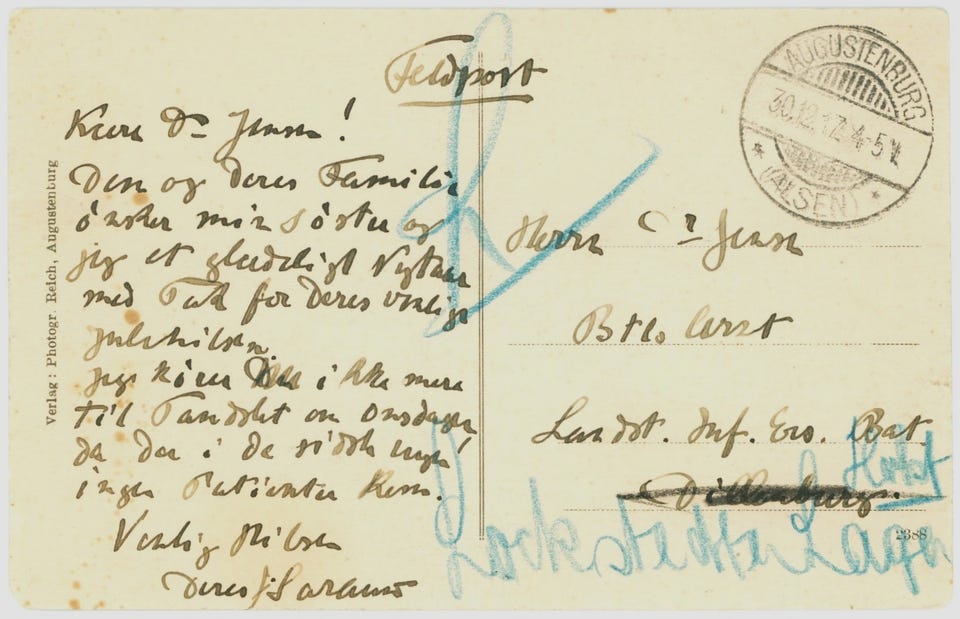 Feldpost
AUGUSTENBURG
30.12.17. 4-5 N.
(ALSEN)
Kære Dr Jensen!
Dem og Deres Familie
ønsker min Søster og
jeg et glædeligt Nytaar
med Tak for Deres venlige
Julehilsen.
Jeg kører ikke mere
til Tandslet om Onsdagen
da der i de sidste uger
ingen Patienter kom.
Venlig Hilsen
Deres
Herrn Dr Jensen
Btls. Arzt
Landst. Inf. Ers. Bat.
Dillenburg.
Lockstedter Lager
2388
Verlag: Photogr. Reich, Augustenburg